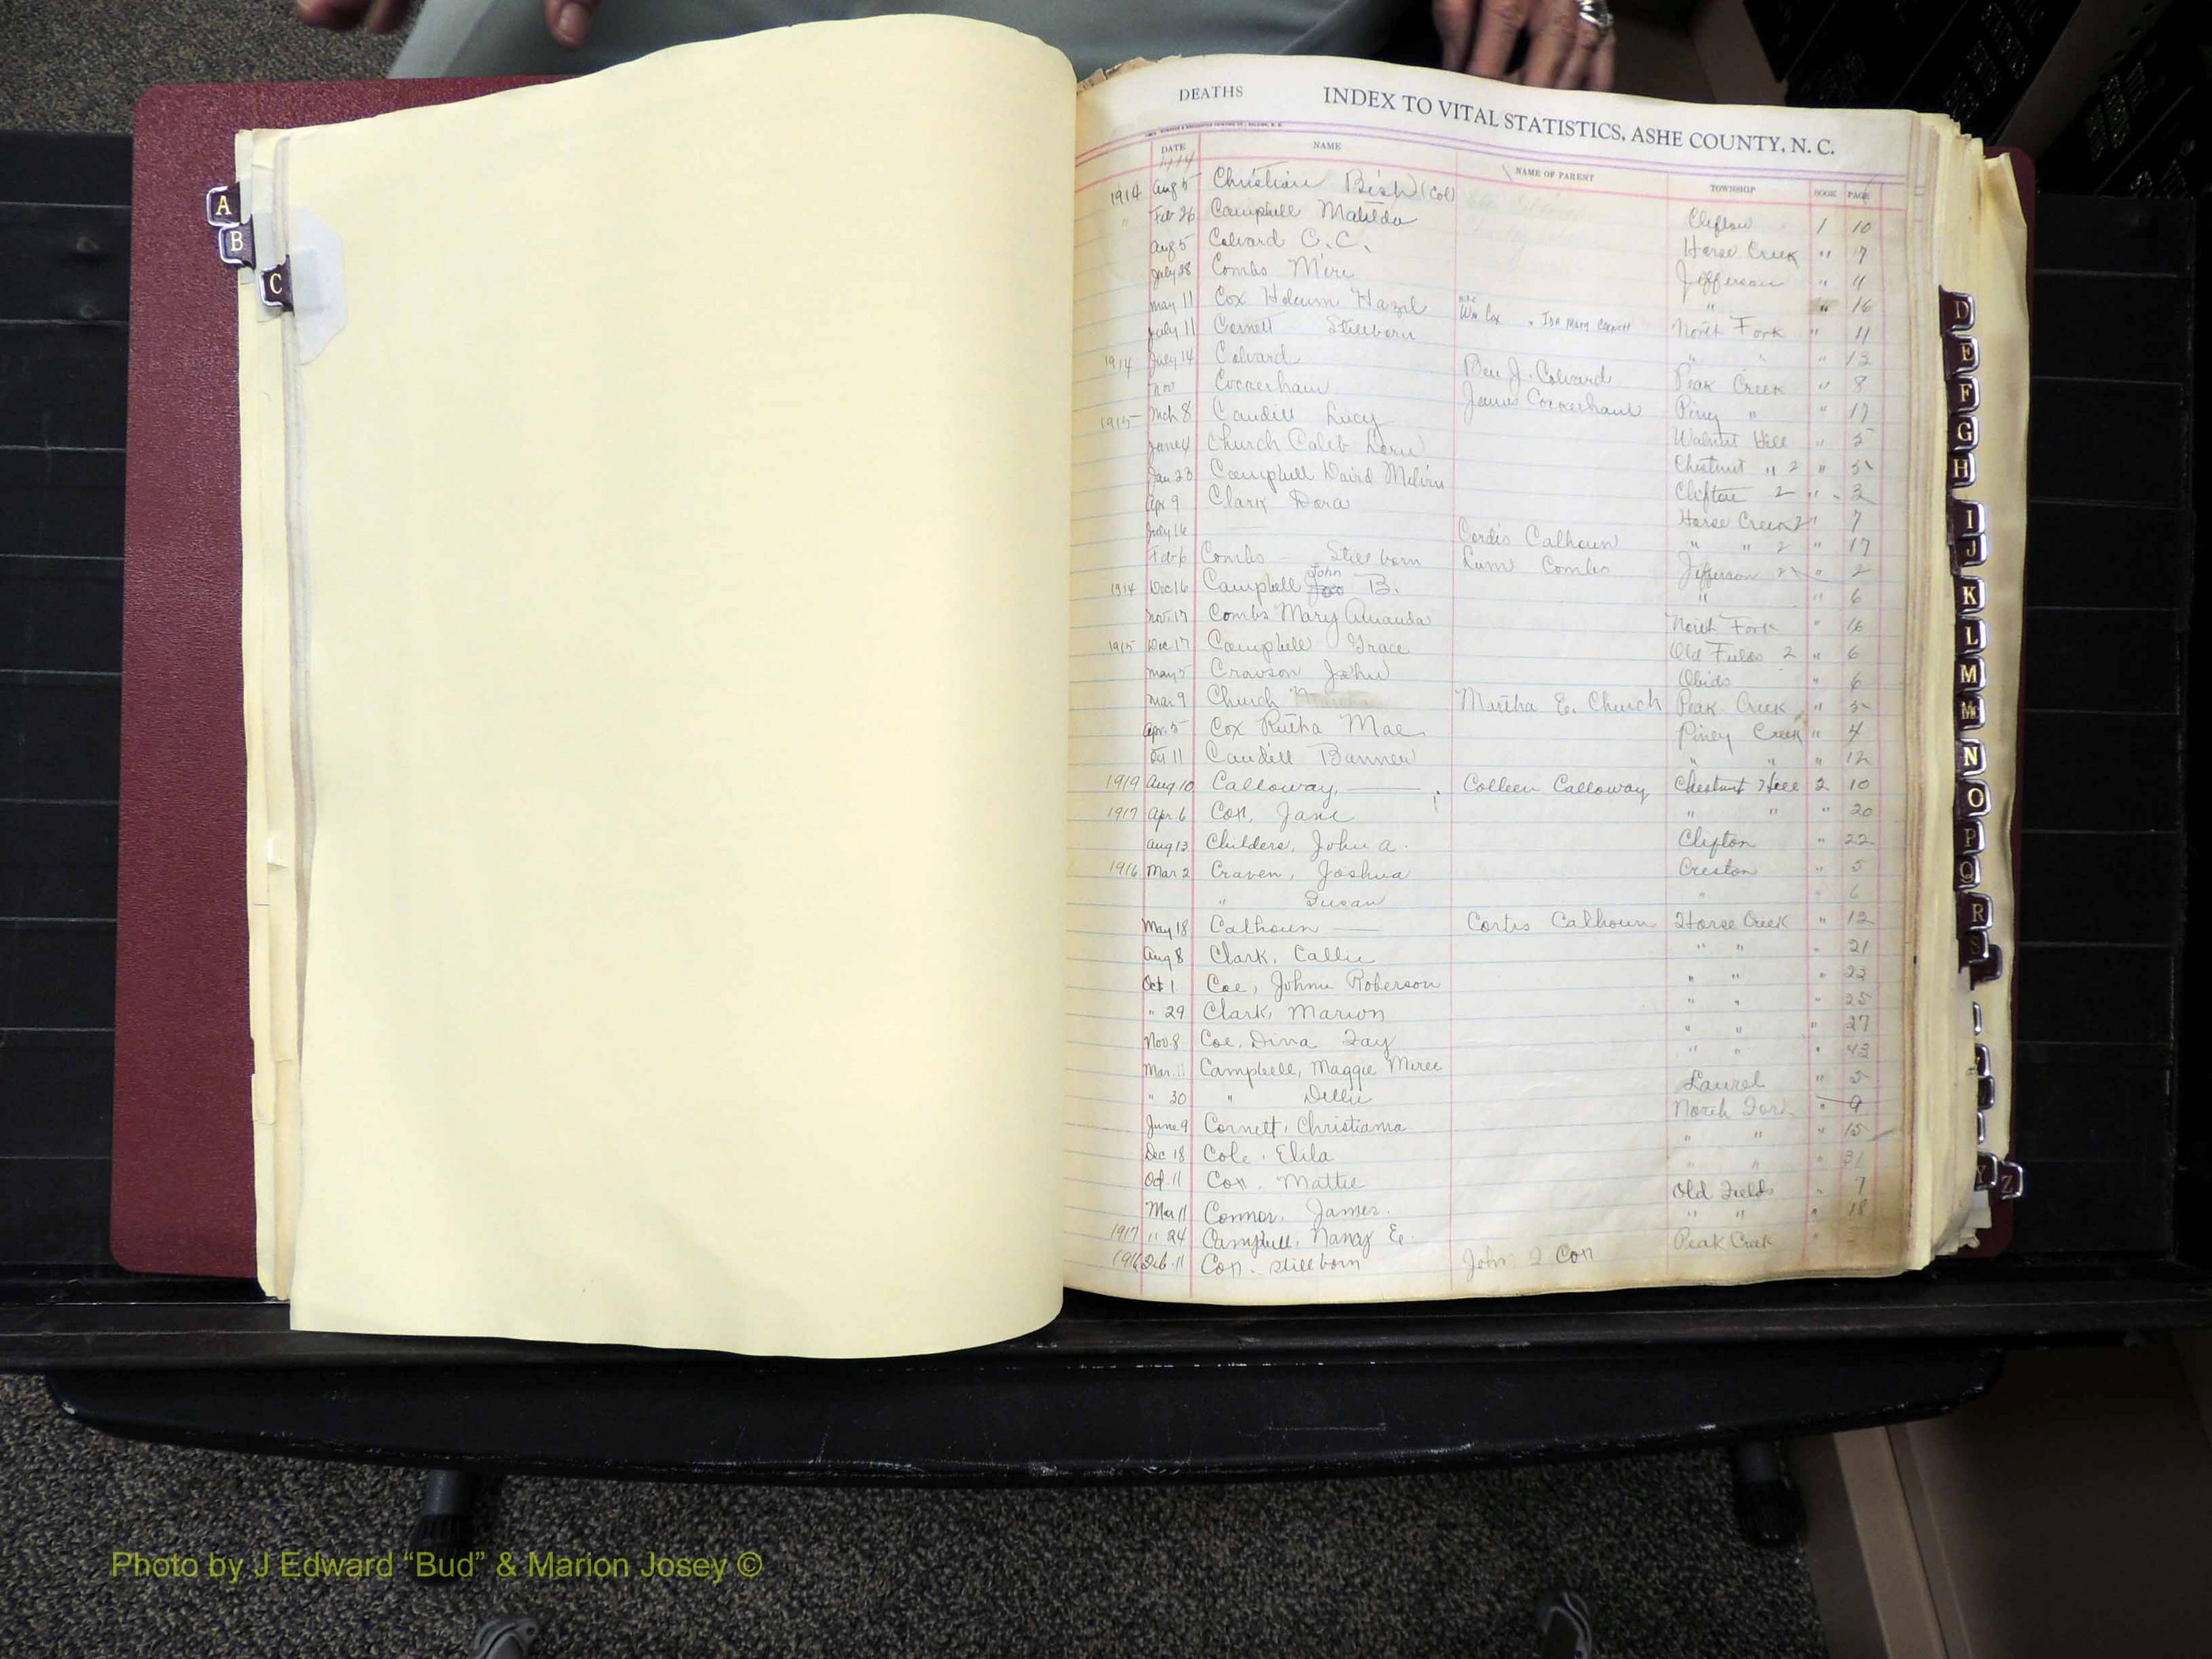 DEATHS INDEX TO VITAL STATISTICS, ASHE COUNTY, N. C.
DATE NAME NAME OF PARENT TOWNSHIP BOOK PAGE
1914
1914 Aug 5 Christian (Col) Clifton 1 10
" Feb 26 Campbell Matilda Horse Creek " 17
Aug 5 Colvard C. C. Jefferson "
July 28 Combs " " 16
May 11 Cox Hazel Wm Cox North Fork " 11
July 11 Cornett Stillborn Ida Mary Cornett " " " 13
1914 July 14 Colvard Ben J. Colvard Peak Creek " 8
Nov Cockerham James Cockerham Piney " " 17
1915 Mch 8 Caudill Lucy Walnut Hill " 5
June 4 Church Caleb Chestnut " 2 "
Jan 23 Campbell David Clifton 2 "
Apr 9 Clark Dora Horse Creek 2 " 7
July 16 Cordis Calhoun " " 2 " 17
Feb 6 Combs Stillborn Lum Combs Jefferson " 2
1914 Dec 16 Campbell John B. " " 6
Nov. 17 Combs Mary Amanda North Fork " 16
1915 Dec 17 Campbell Grace Old Fields 2 " 6
May 5 Crawson John Obids " 6
Mar 9 Church Martha E. Church Peak Creek "
Apr. 5 Cox Rutha Mae Piney Creek " 4
Oct 11 Caudill Banner " " " 12
1919 Aug 10 Calloway, Colleen Calloway Chestnut Hill 2 10
1917 Apr. 6 Cox, Jane " " " 20
Aug 13 Childers, John A. Clifton " 22
1916 Mar 2 Craven, Joshua Creston " 5
" Susan " " 6
May 18 Calhoun — Cortis Calhoun Horse Creek " 12
Aug 8 Clark, Callie " " " 21
Oct 1 Coe, Johnie Roberson " " " 23
" 29 Clark, Marion " " " 25
Nov. 8 Coe, Dina Fay " " " 27
" " " 43
Mar. 11 Campbell, Maggie Laurel " 5
" 30 " Dellie North Fork " 9
June 9 Cornett, Christiana " " " 15
Dec 18 Cole, Elila " " " 31
Oct. 11 Cox, Mattie Old Fields " 7
Mar 11 Connor, James. " " " 18
1917 " 24 Campbell, Nancy E. Peak Creek "
1916 Feb. 11 Cox. stillborn John Cox
A
B
C
D
E
F
G
H
I
J
K
L
M
Mc
N
O
P
Q
R
S
Y
Z
Photo by J Edward “Bud” & Marion Josey ©